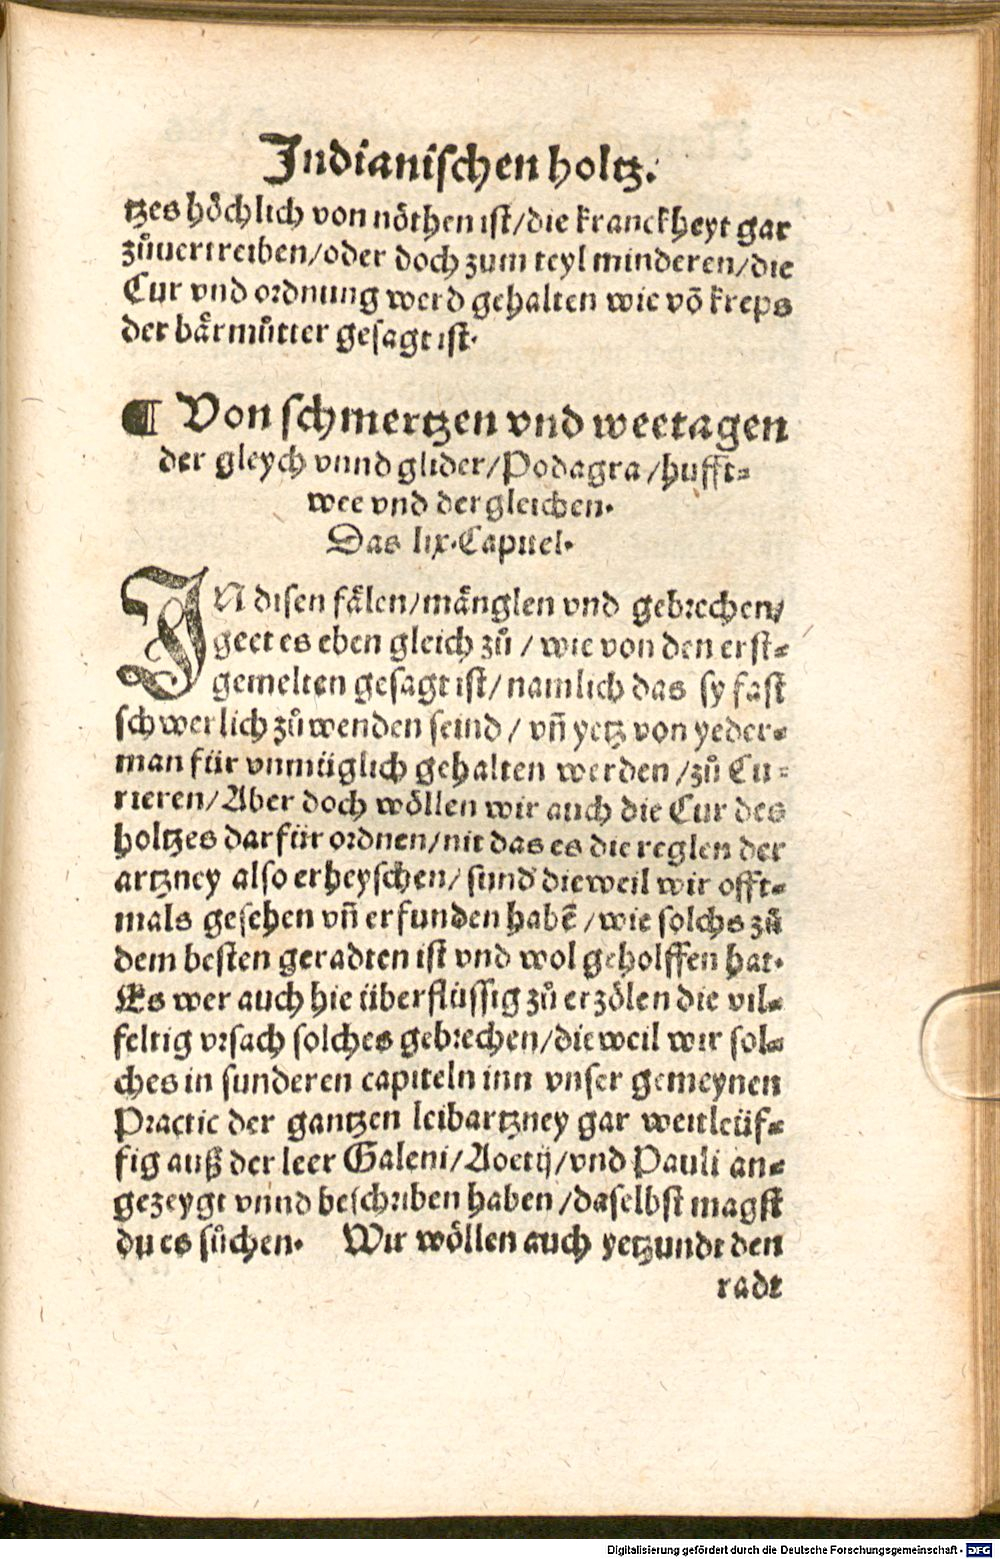 Indianischen holtz.
tzes höchlich von nöthen ist/die kranckheyt gar
zůuertreiben/oder doch zum teyl minderen/die
Cur vnd ordnung werd gehalten wie vō kreps
der bärmůtter gesagt ist.
¶ Von schmertzen vnd weetagen
der gleych vnnd glider/Podagra/hufft-
wee vnd dergleichen.
Das lix.Capitel.
IN disen fälen/mänglen vnd gebrechen/
geet es eben gleich zů/wie von den erst-
gemelten gesagt ist/namlich das sy fast
schwerlich zůwenden seind/vñ yetz von yeder-
man für vnmüglich gehalten werden/zů Cu-
rieren/Aber doch wöllen wir auch die Cur des
holtzes darfür ordnen/nit das es die reglen der
artzney also erheyschen/sund dieweil wir offt-
mals gesehen vñ erfunden habē/wie solchs zů
dem besten geradten ist vnd wol geholffen hat.
Es wer auch hie überflüssig zů erzölen die vil-
feltig vrsach solches gebrechen/dieweil wir sol-
ches in sunderen capiteln inn vnser gemeynen
Practic der gantzen leibartzney gar weitleüf-
fig auß der leer Galeni/Aoetij/vnd Pauli an-
gezeygt vnnd beschriben haben/daselbst magst
du es sůchen. Wir wöllen auch yetzundt den
radt
Digitalisierung gefördert durch die Deutsche Forschungsgemeinschaft - DFG